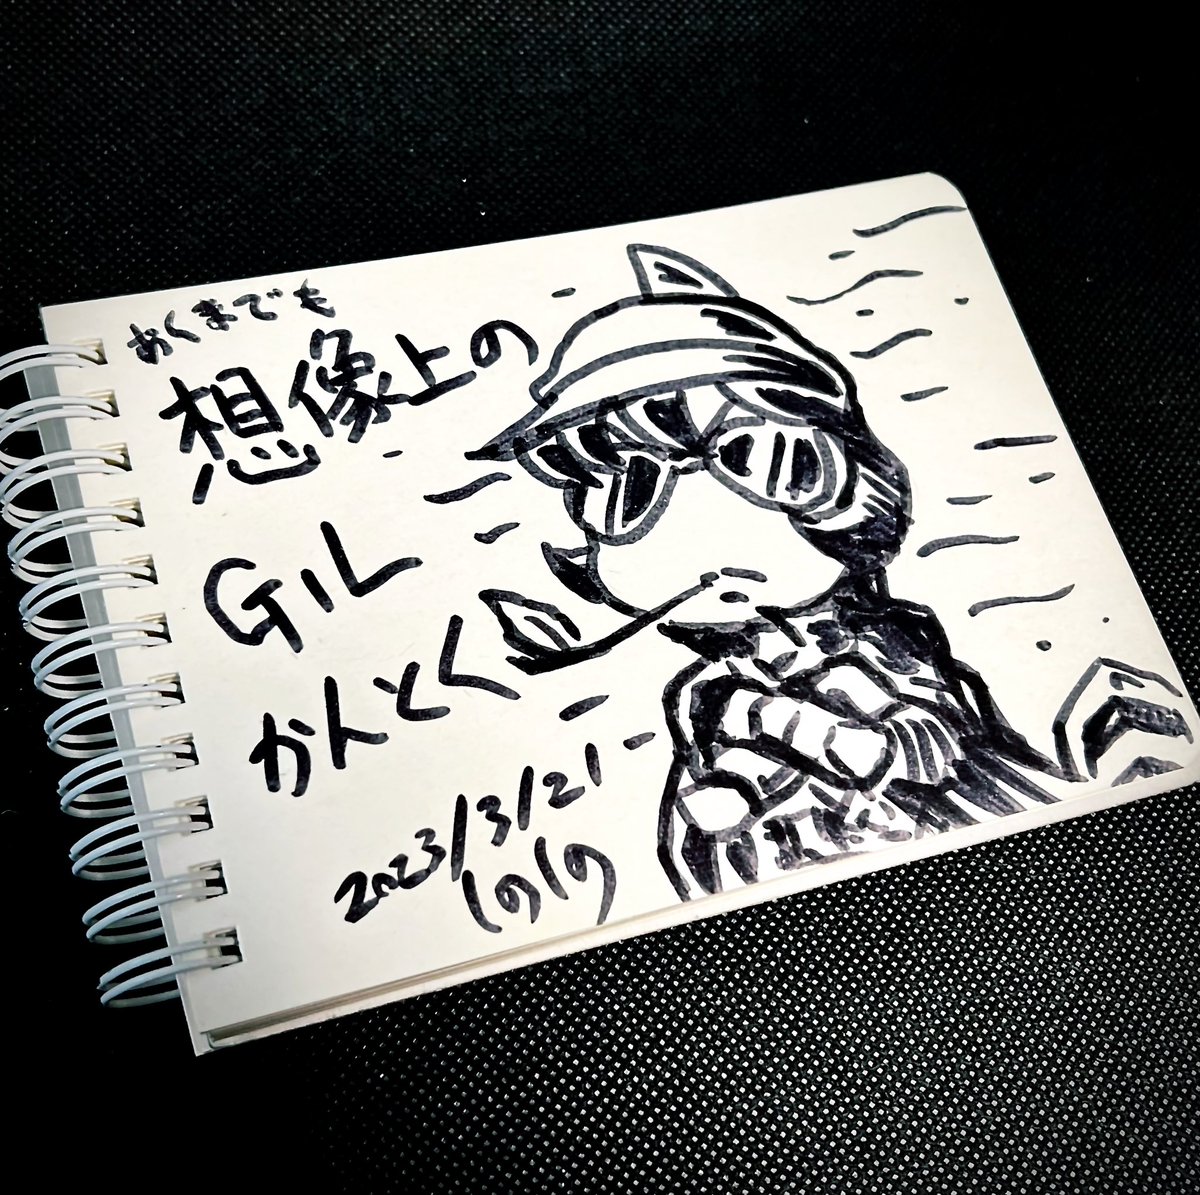 あくまでも
想像上の
GIL
かんとく
2023/3/21
しのしの